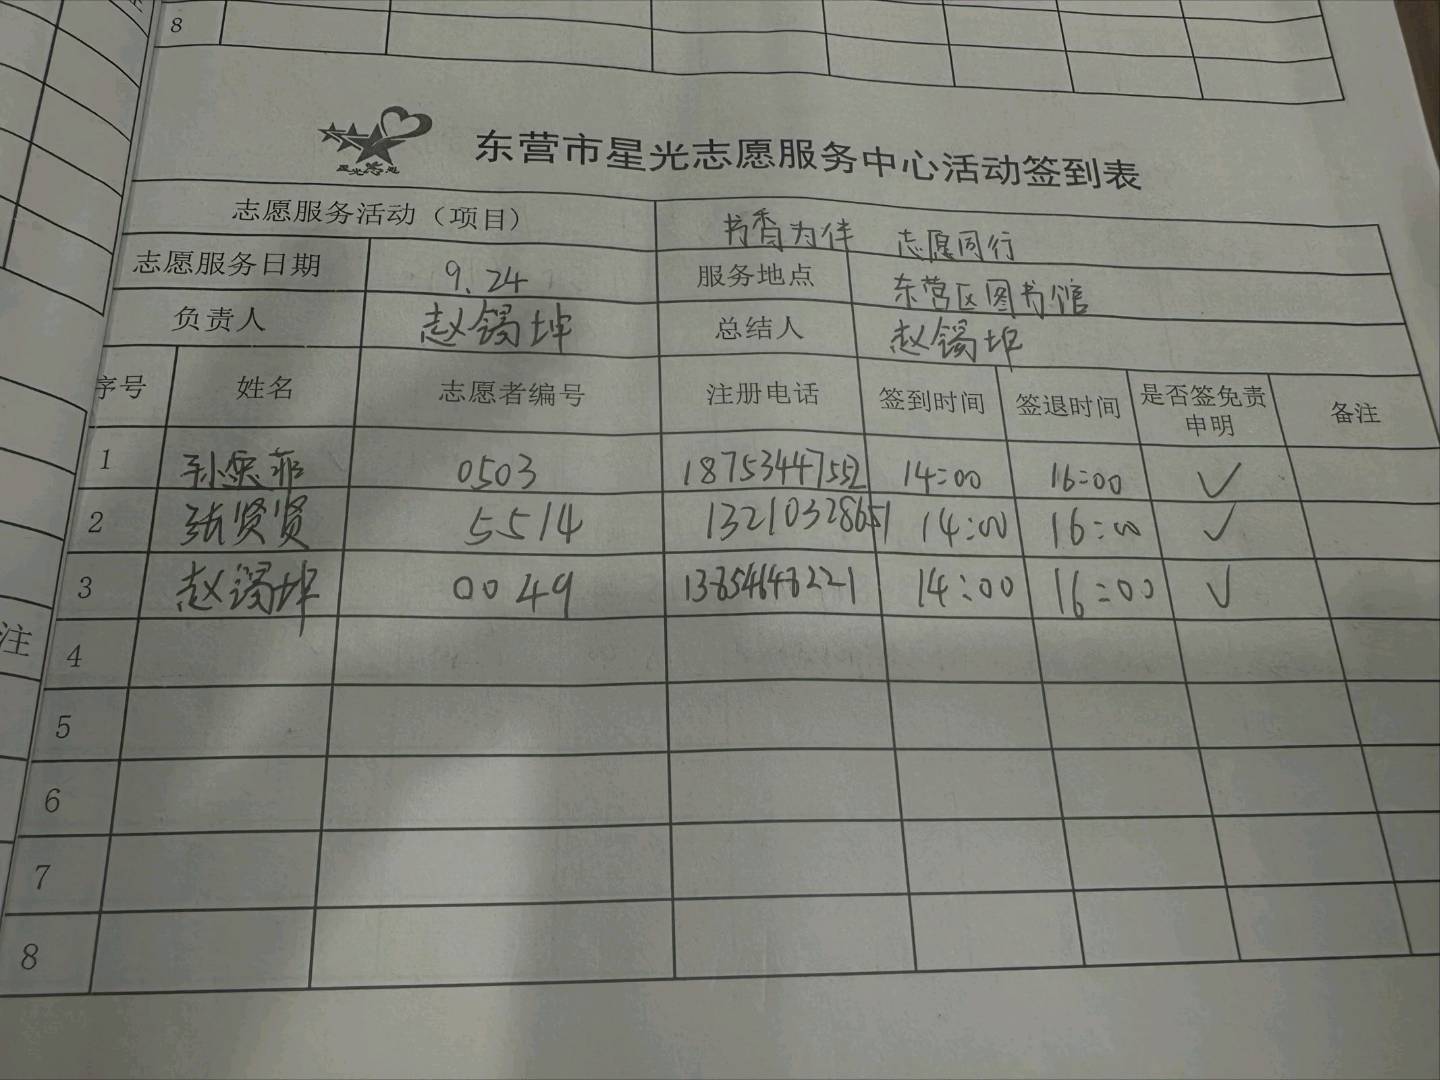 8
星光志愿
东营市星光志愿服务中心活动签到表
志愿服务活动（项目） 书香为伴 志愿同行
志愿服务日期 9.24 服务地点 东营区图书馆
负责人 赵锡坤 总结人 赵锡坤
序号 姓名 志愿者编号 注册电话 签到时间 签退时间 是否签免责申明 备注
1 孙 菲 0503 18753447552 14:00 16:00 ✓
2 张贤贤 5514 13210328651 14:00 16:00 ✓
3 赵锡坤 0049 14:00 16:00 ✓
4
5
6
7
8
注